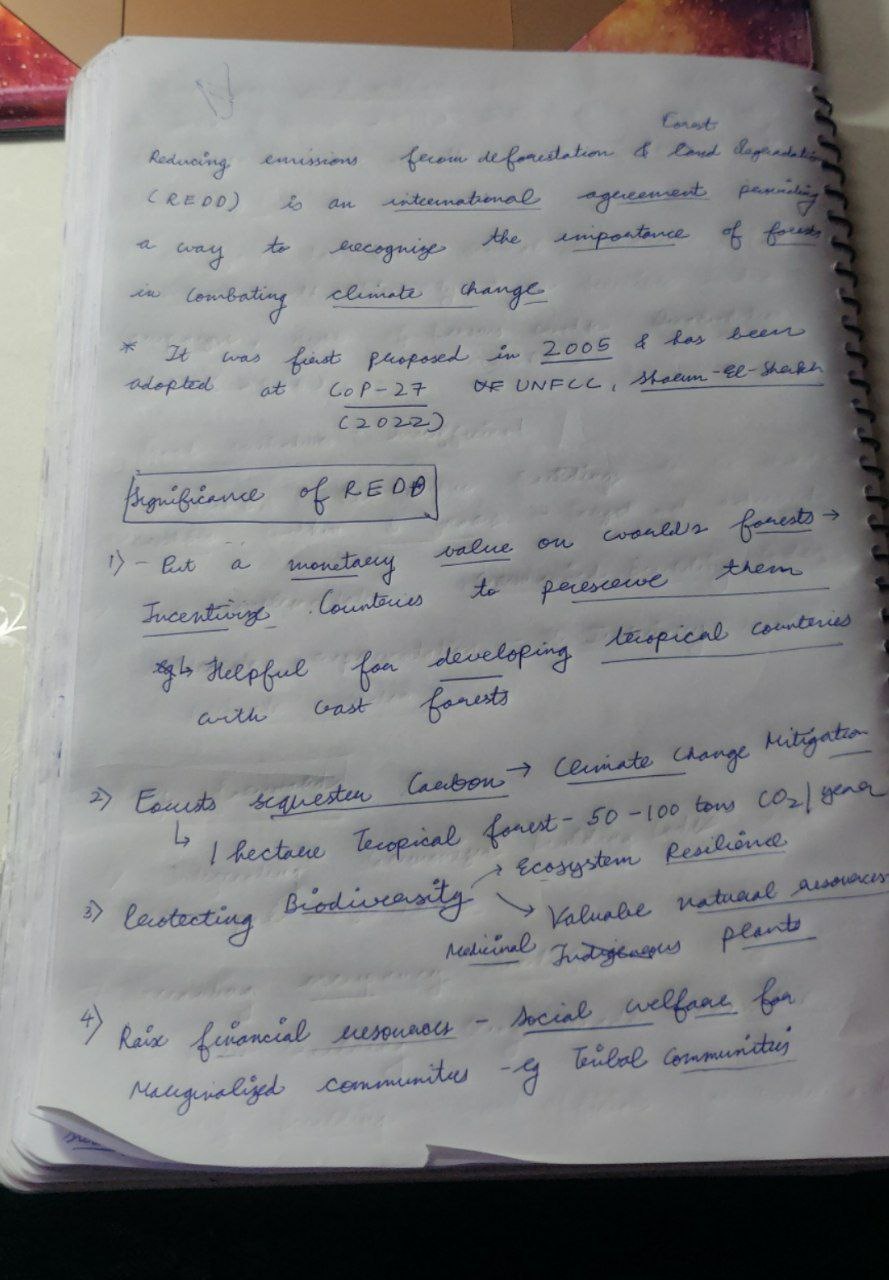 Forest
Reducing emissions from deforestation & land degradation
(REDD) is an international agreement providing
a way to recognize the importance of forests
in combating climate change
* It was first proposed in 2005 & has been
adopted at CoP-27 of UNFCC, Sharm-El-Sheikh
(2022)
Significance of REDD
1) - Put a monetary value on world's forests →
Incentivize Countries to perserve them
eg ↳ Helpful for developing tropical countries
with vast forests
2) Forests sequester Carbon → Climate Change Mitigation
↳ 1 hectare Tropical forest - 50-100 tons CO2/year
3) Protecting Biodiversity → Ecosystem Resilience
→ Valuable natural resources
Medicinal Indigeneous plants
4) Raise financial resources - social welfare for
Marginalized communities - eg Tribal Communities